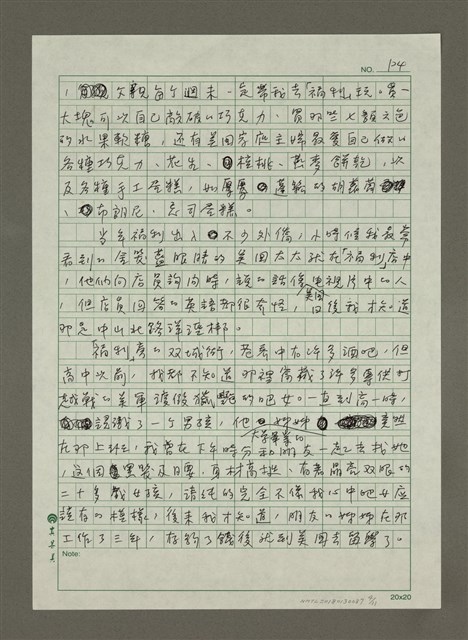 NO. 124
，父親每個週末一定帶我去「福利」玩。買一
大塊可以自己敲破的巧克力、買那些七顏六色
的水果軟糖，還有美國家庭主婦最愛自己做的
各種巧克力、花生、核桃、燕麥餅乾，以
及各種手工蛋糕，如厚厚蓬鬆的胡蘿蔔
、布朗尼、起司蛋糕。
當年福利出入不少外僑，小時候我最愛
看到的金髮藍眼時的美國太太就在「福利」店中
，他們向店員詢問時，說的就像美國電視片中的人
，但店員回答的英語都很奇怪，日後我才知道
那是中山北路洋涇梆。
「福利」旁的双城街，巷弄中有許多酒吧，但
高中以前，我都不知道那裡窩藏了許多專供打
越戰的美軍渡假的吧女。一直到高一時，
認識了一個男孩，他姊姊大學畢業的竟然
在那上班，我曾在下午時分和朋友一起去找她
，這個黑髮及腰、身材高挑、有著晶亮双眼的
二十多歲女孩，清純的完全不像我心中吧女應
該有的模樣，後來我才知道，朋友的姊姊在那
工作了三年，存夠了錢後就到美國去留學了。
Note:
20x20